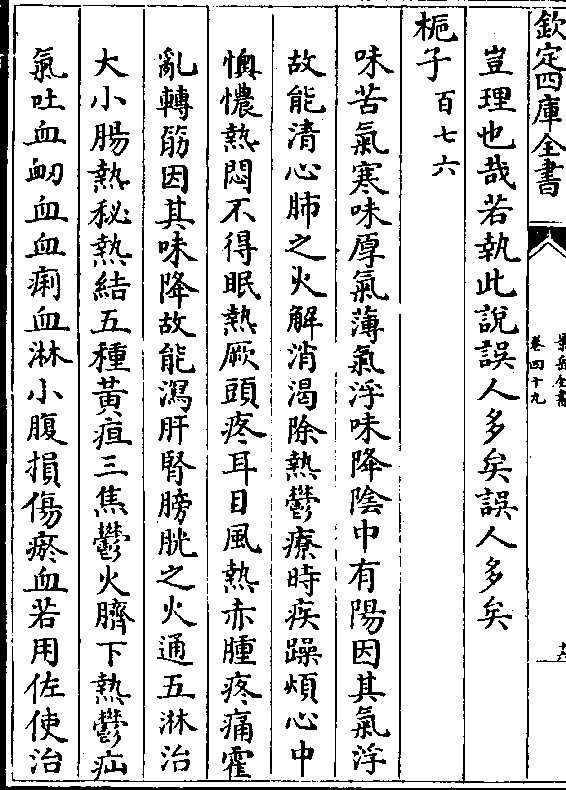 欽定四庫全書
景岳全書
卷四十九
豈理也哉若執此說誤人多矣誤人多矣
梔子百七六
味苦氣寒味厚氣薄氣浮味降陰中有陽因其氣浮
故能清心肺之火解消渴除熱鬱療時疾躁煩心中
懊憹熱悶不得眠熱厥頭疼耳目風熱赤腫疼痛霍
亂轉筋因其味降故能瀉肝腎膀胱之火通五淋治
大小腸熱秘熱結五種黃疸三焦鬱火臍下熱鬱疝
氣吐血衂血血痢血淋小腹損傷瘀血若用佐使治